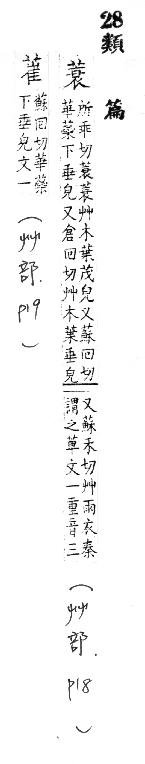 28類篇
蓑
所乖切蓑蓑艸木葉茂皃又蘇回切
華蘂下垂皃又倉回切艸木葉垂皃
又蘇禾切艸雨衣秦
謂之萆文一重音三
(艸部.p18)
蓷
蘇回切華蘂
下垂皃文一
(艸部.p19)